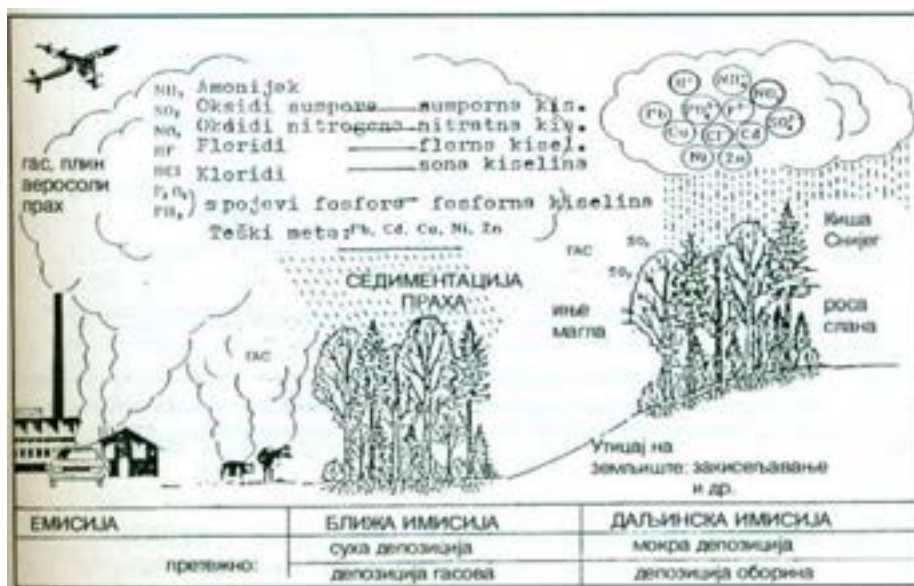 NH₃ Amonijek
SO₂ Oksidi sumpora sumporna kis.
NOₓ Okdidi nitrogena nitratna kis.
HF Floridi florna kisel.
HCl Kloridi sona kiselina
spojevi fosfora fosforna kiselina
Teški meta: Pb, Cd, Cu, Ni, Zn
гас, плин
аеросоли
прах
Pb
Cu Cl⁻ Cd
Ni Zn
Киша
Снијег
ГАС
СЕДИМЕНТАЦИЈА
ПРАХА
иње
магла
роса
слана
ГАС
Утицај на
земљиште: закисељавање
и др.
ЕМИСИЈА БЛИЖА ИМИСИЈА ДАЉИНСКА ИМИСИЈА
претежно: сува депозиција мокра депозиција
депозиција гасова депозиција оборина